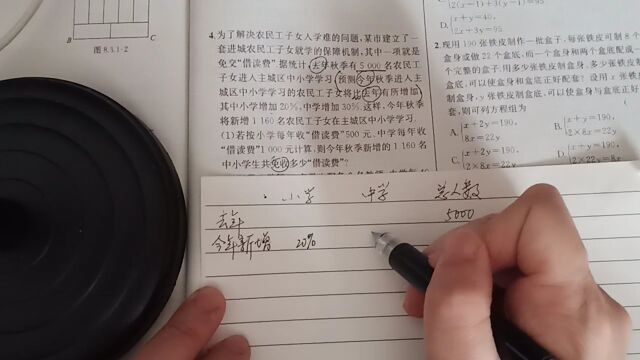 B
C
图 8.3.1-2
4. 为了解决农民工子女入学难的问题,某市建立了一
套进城农民工子女就学的保障机制,其中一项就是
免交“借读费”.据统计,去年秋季有5 000名农民工
子女进入主城区中小学学习,预测今年秋季进入主
城区中小学学习的农民工子女将比去年有所增加,
其中小学增加20%,中学增加30%,这样,今年秋季
将新增1 160名农民工子女在主城区中小学学习.
(1)若按小学每年收“借读费”500元、中学每年收
“借读费”1 000元计算,则今年秋季新增的1 160名
中小学生共免收多少“借读费”?
D.
x+y=40,
2x+3y=95
2. 现用190张铁皮制作一批盒子,每张铁皮可制8个
盒身或做22个盒底,而一个盒身和两个盒底配成一
个完整的盒子.用多少张铁皮制盒身,多少张铁皮制
盒底,可以使盒身和盒底正好配套?设用x张铁皮
制盒身,y张铁皮制盒底,可以使盒身与盒底正好
套,则可列方程组为
A.
x+2y=190,
8x=22y
B.
x+y=190,
2×8x=22y
C.
2y+x=190,
2×8x=22y
D.
x+y=190,
小学 中学 总人数
去年 5000
今年新增 20%